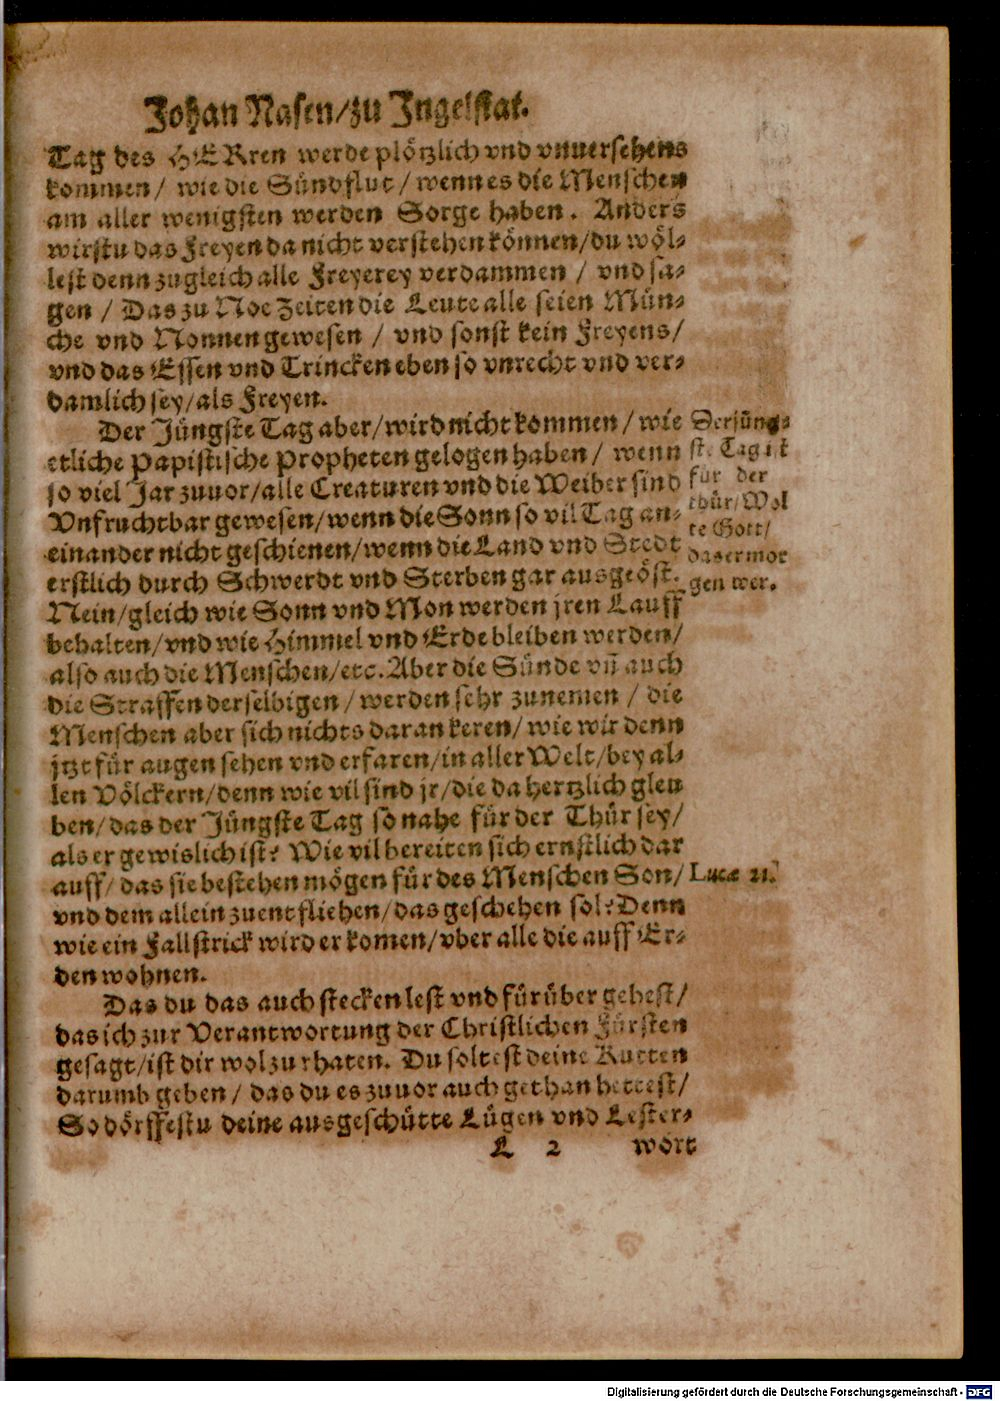 Johan Nasen/zu Jngelstat.
Tag des HERren werde plötzlich vnd vnuersehens
kommen/ wie die Sündflut/ wenn es die Menschen
am aller wenigsten werden Sorge haben. Anders
wirstu das Freyen da nicht verstehen können/du wöl-
lest denn zugleich alle Freyerey verdammen / vnd sa-
gen / Das zu Noe Zeiten die Leute alle seien Mün-
che vnd Nonnen gewesen / vnd sonst kein Freyens/
vnd das Essen vnd Trincken eben so vnrecht vnd ver-
damlich sey/als Freyen.
Der Jüngste Tag aber/wird nicht kommen/ wie
etliche Papistische Propheten gelogen haben/ wenn
so viel Jar zuuor/alle Creaturen vnd die Weiber sind
Vnfruchtbar gewesen/wenn die Sonn so vil Tag an-
einander nicht geschienen/wenn die Land vnd Stedt
erstlich durch Schwerdt vnd Sterben gar ausgeöst.
Nein/gleich wie Sonn vnd Mon werden jren Lauff
behalten/vnd wie Himmel vnd Erde bleiben werden/
also auch die Menschen/etc. Aber die Sünde vñ auch
die Straffen derselbigen/werden sehr zunemen / die
Menschen aber sich nichts daran keren/ wie wir denn
jtzt für augen sehen vnd erfaren/in aller Welt/bey al-
len Völckern/denn wie vil sind jr/die da hertzlich gleu
ben/das der Jüngste Tag so nahe für der Thür sey/
als er gewislich ist? Wie vil bereiten sich ernstlich dar
auff/ das sie bestehen mögen für des Menschen Son/
vnd dem allein zuentfliehen/das geschehen sol? Denn
wie ein Fallstrick wird er komen/vber alle die auff Er-
den wohnen.
Das du das auch stecken lest vnd fürüber gehest/
das ich zur Verantwortung der Christlichen Fürsten
gesagt/ist dir wol zu rhaten. Du soltest deine Kutten
darumb geben/ das du es zuuor auch gethan hettest/
So dörffestu deine ausgeschütte Lügen vnd Lester-
L 2 wort
Der jüng-
st. Tag ist
für der
thür/Wol
te Gott/
das er mor
gen wer.
Luce 21.
Digitalisierung gefördert durch die Deutsche Forschungsgemeinschaft - DFG